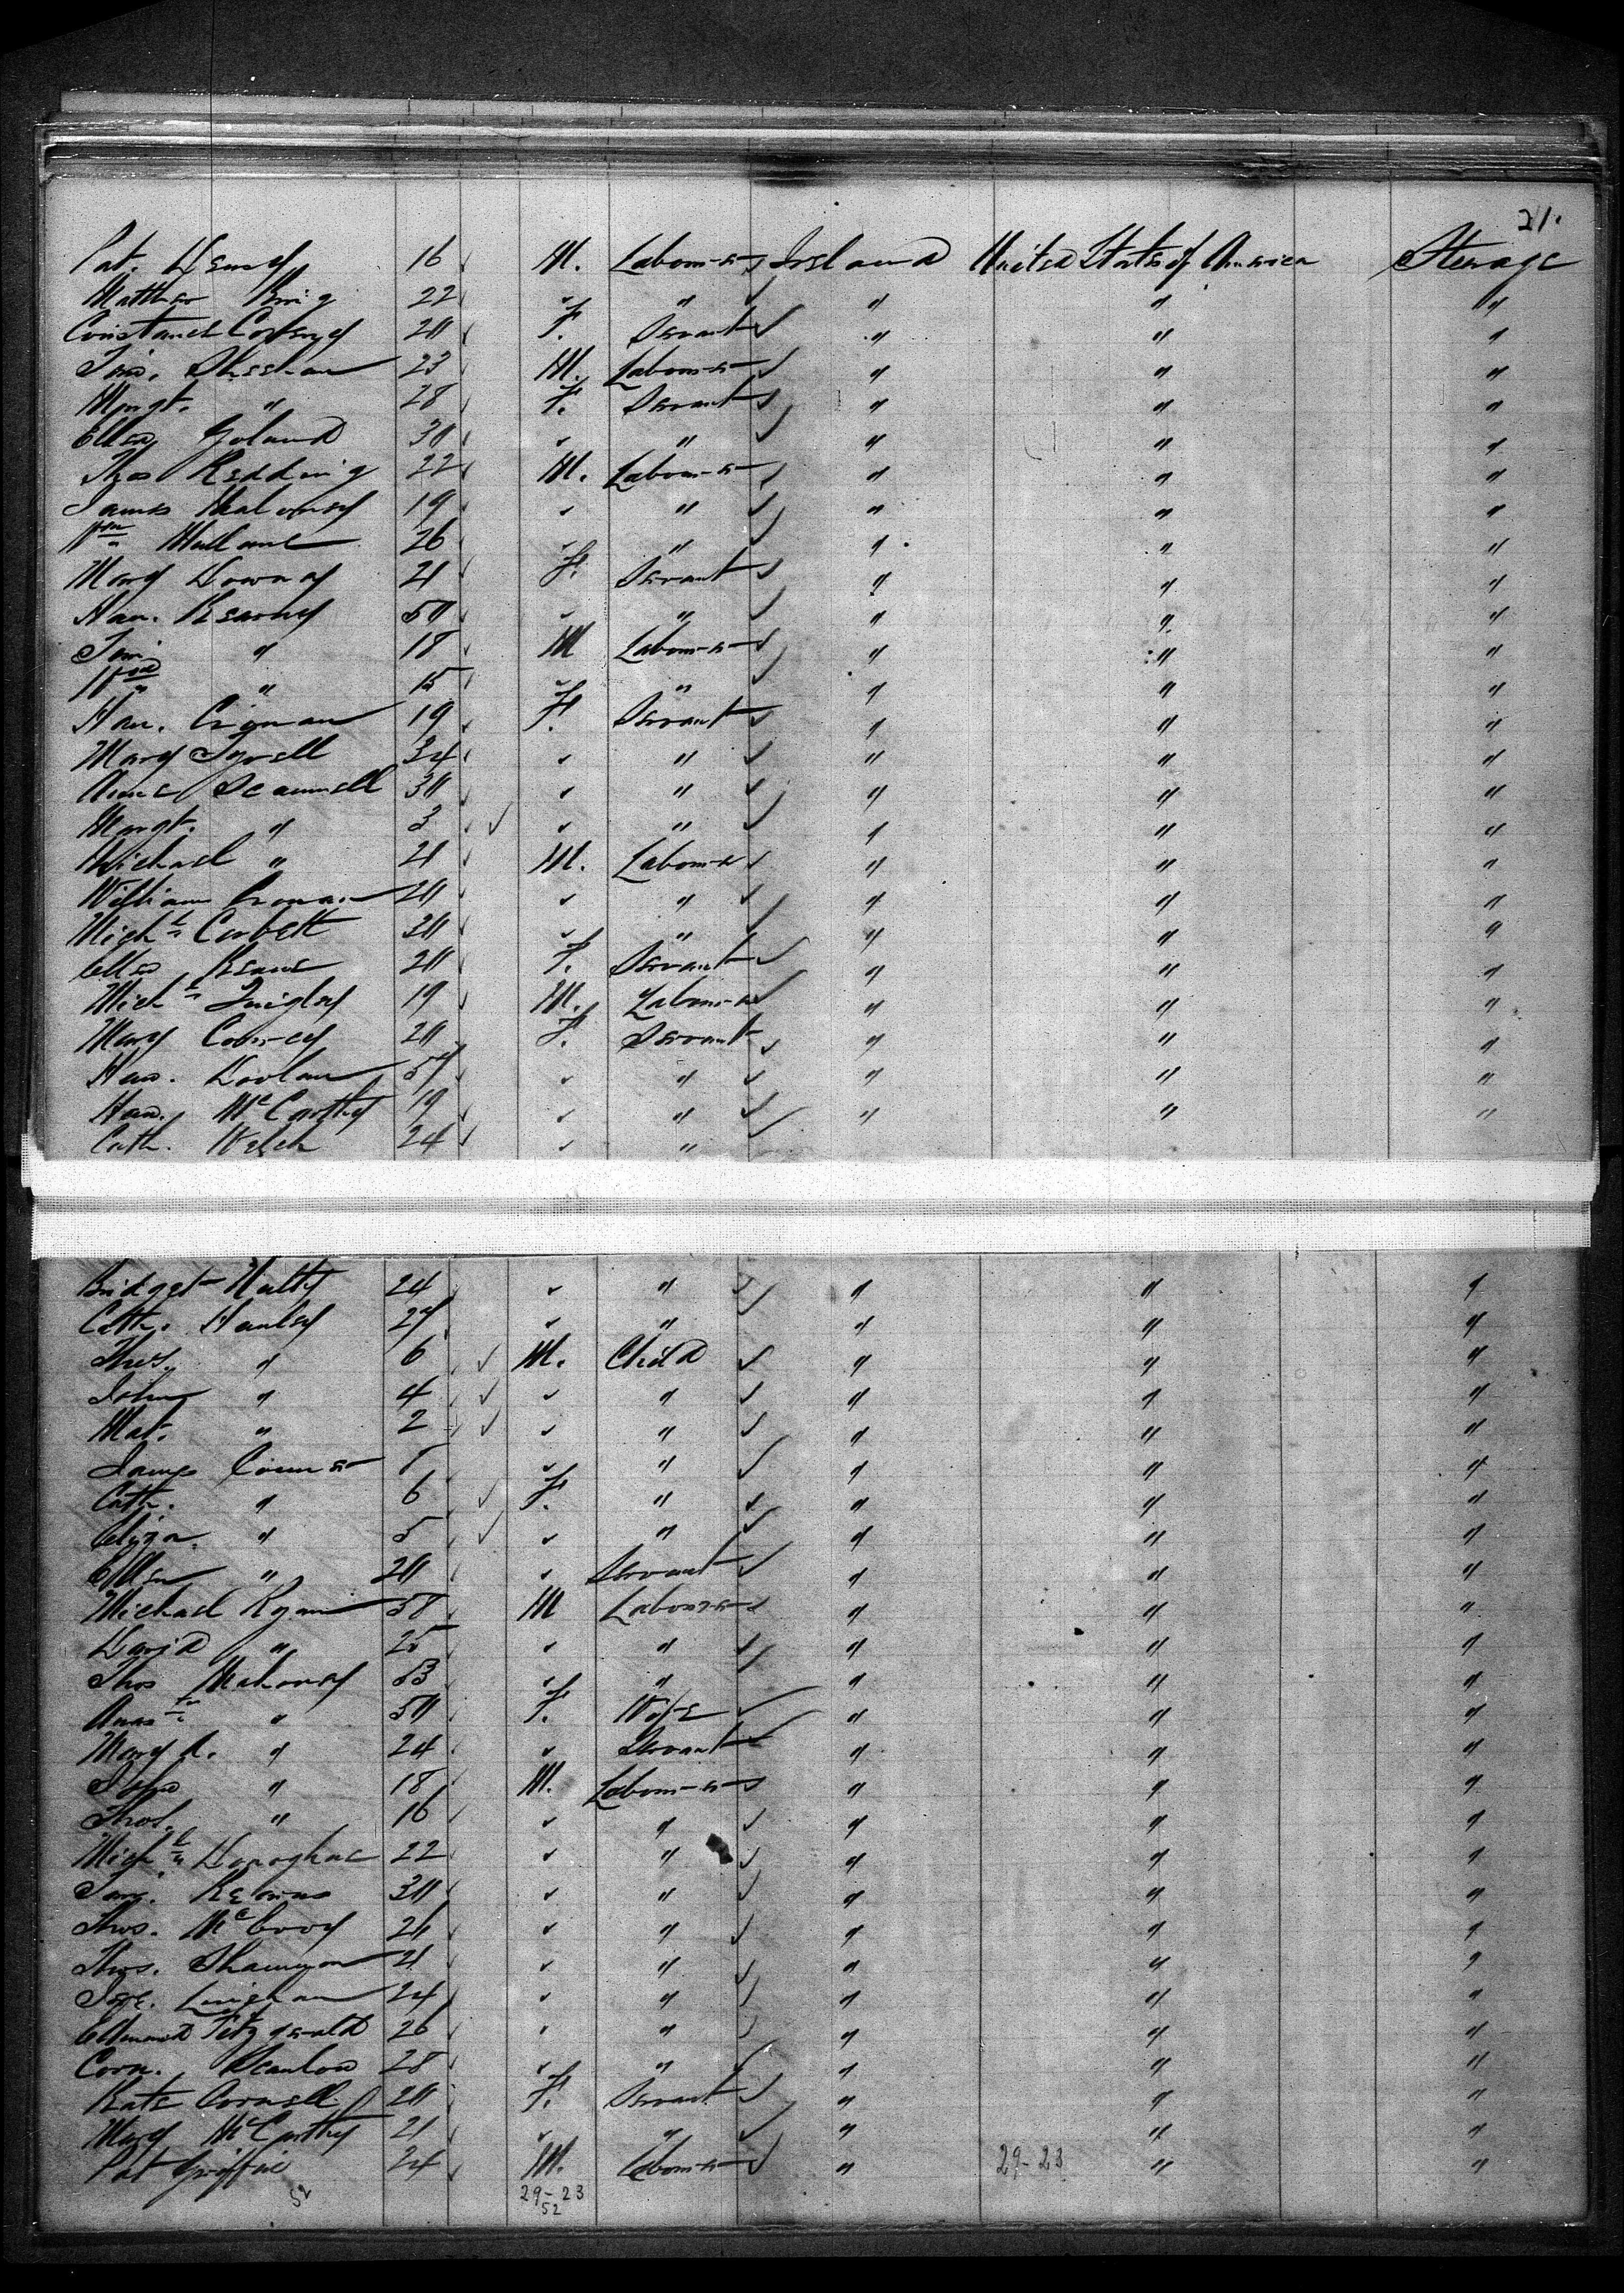 21.
Pat. Densy 16 M. Labourer Ireland United States of America Steerage
Matthew King 22 " " " "
Constance 20 F. Servant " " "
Tim. Sheehan 23 M. Labourer " " "
Margt. " 28 F. Servant " " "
Ellen Yoland 30 " " " "
Thos Redding 22 M. Labourer " " "
James Maloney 19 " " " "
Wm Mullane 26 " " " "
Mary Downey 21 F. Servant " " "
Han. Kearney 50 " " " "
Tim " 18 M Labourer " " "
Wm " 15 " " " "
Han. Cronan 19 F. Servant " " "
Mary Tyrell 34 " " " "
Anne Scannell 30 " " " "
Margt. " 3 " " " "
Michael " 21 M. Labourer " " "
William 20 " " " "
Michl Corbett 30 " " " "
Ellen Keane 20 F. Servant " " "
Michl Quigley 19 M. Labourer " " "
Mary 20 F. Servant " " "
Han. Doolan 57 " " " "
Han. McCarthy 19 " " " "
Cath. Welsh 24 "
Bridget Nulty 24 " " " "
Cath. Hanley 27 " " " "
Thos. " 6 M. Child " " "
John " 4 " " " "
Mat. " 2 " " " "
James Conner 8 " " " "
Cath. " 6 F. " " " "
Eliza. " 5 " " " "
Ellen " 20 Servant " " "
Michael Ryan 58 M Labourer " " "
David " 25 " " " "
Thos Mahoney 53 " " " "
Anas " 50 F. Wife " " "
Mary A. " 24 Servant " " "
John " 18 M. Labourer " " "
Thos. " 16 " " " "
Michl Donoghue 22 " " " "
Jas. Kearns 30 " " " "
Thos. McEvoy 26 " " " "
Thos. Shannon 21 " " " "
Jas. Lenihan 24 " " " "
Edmund Fitzgerald 26 " " " "
Corn. Scanlon 28 " " " "
Kate Connell 20 F. Servant " " "
Mary McCarthy 21 " " " "
Pat Griffin 24 M. Labourer " 29-23 " "
52 29-23
52